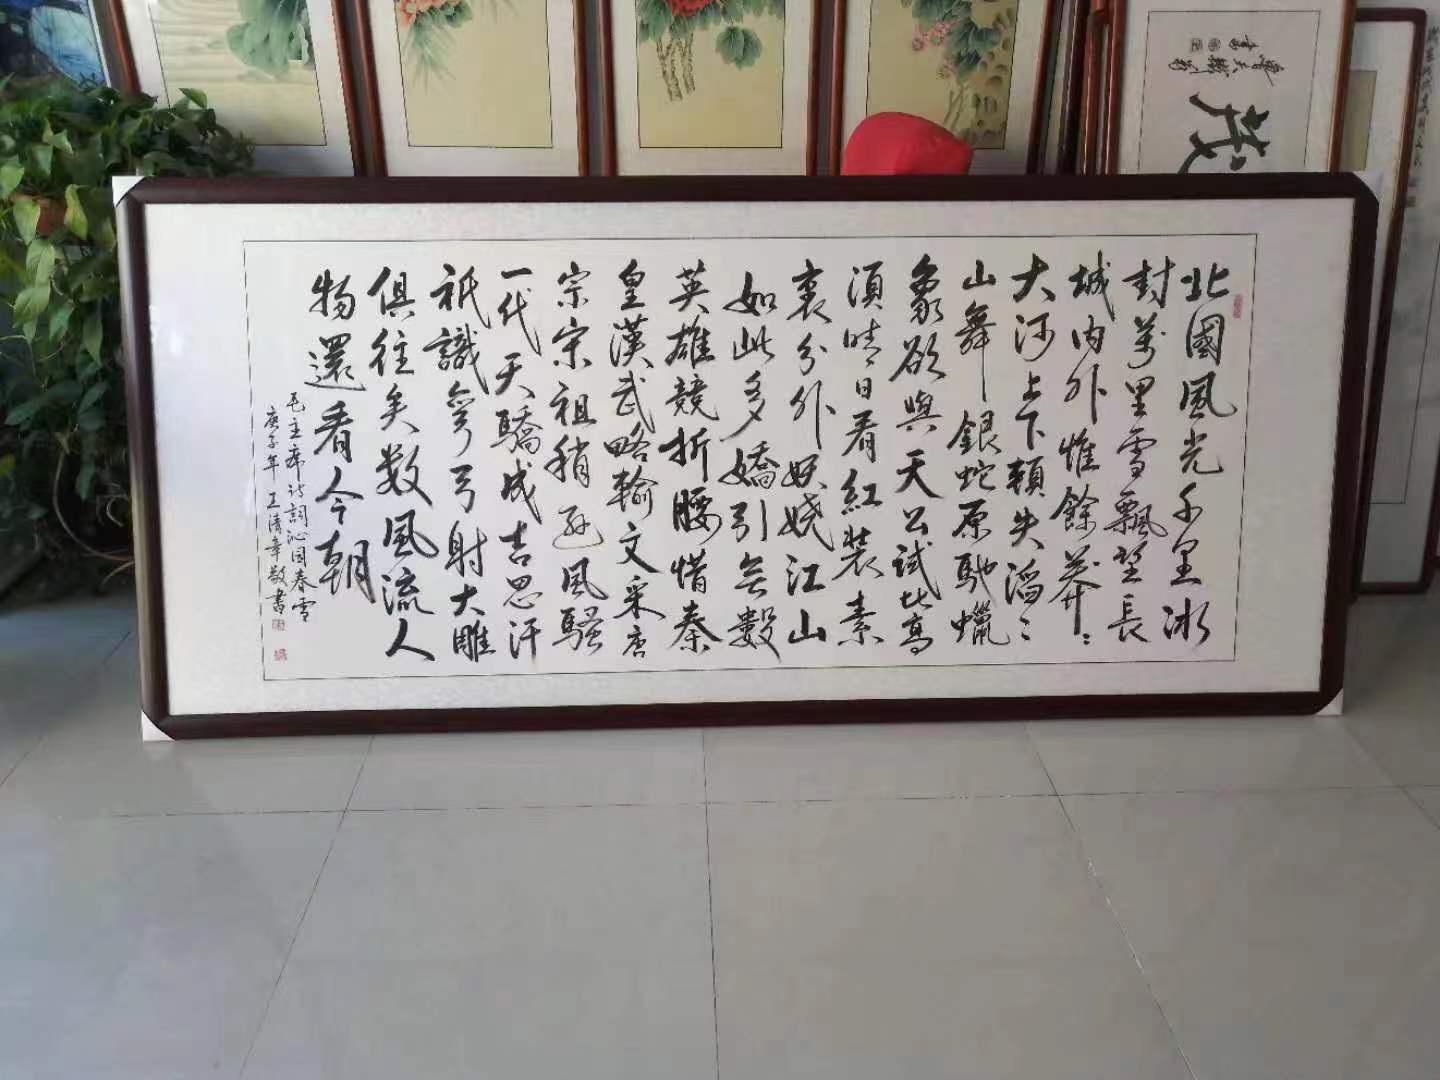 北國風光千里冰
封萬里雪飄望長
城内外惟餘莽〻
大河上下頓失滔〻
山舞銀蛇原馳蠟
象欲與天公試比高
須晴日看紅裝素
裹分外妖嬈江山
如此多嬌引無數
英雄競折腰惜秦
皇漢武略輸文采唐
宗宋祖稍遜風騷
一代天驕成吉思汗
祇識彎弓射大雕
俱往矣数風流人
物還看今朝
毛主席诗詞沁园春雪
庚子年 王清章敬書